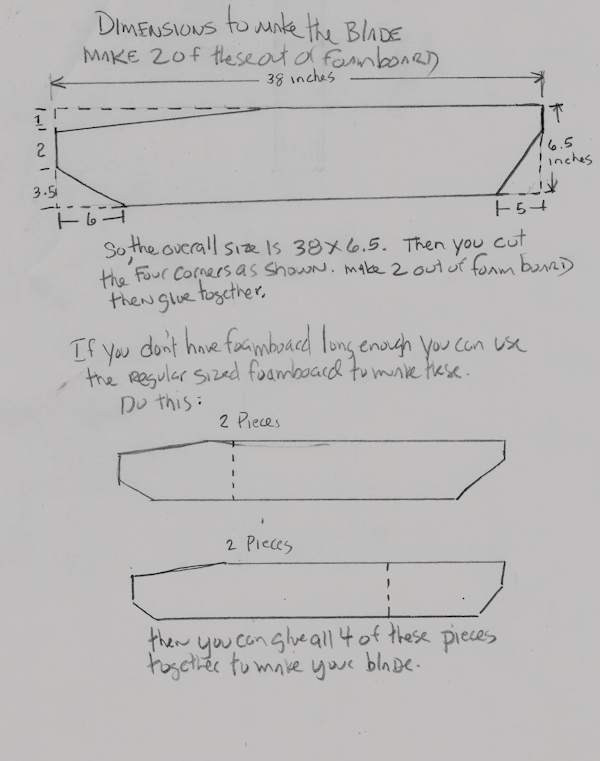 DIMENSIONS to make the BLADE
MAKE 2 of these out of foamboard
38 inches
1
2
3.5
6
6.5
inches
5
So, the overall size is 38 x 6.5. Then you cut
the four corners as shown. make 2 out of foam board
then glue together.
If you don't have foamboard long enough you can use
the regular sized foamboard to make these.
Do this:
2 Pieces
2 Pieces
then you can glue all 4 of these pieces
together to make your blade.